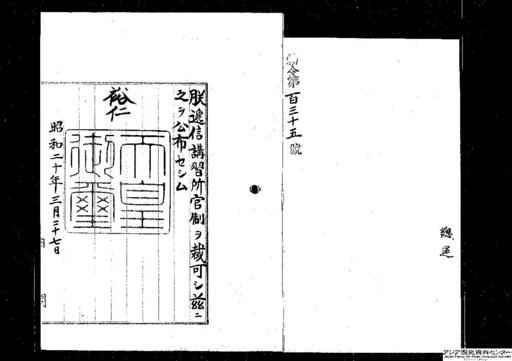 勅令第百三十五號
總遞
朕遞信講習所官制ヲ裁可シ茲ニ
之ヲ公布セシム
裕仁
天皇御璽
昭和二十年三月二十七日
アジア歴史資料センター